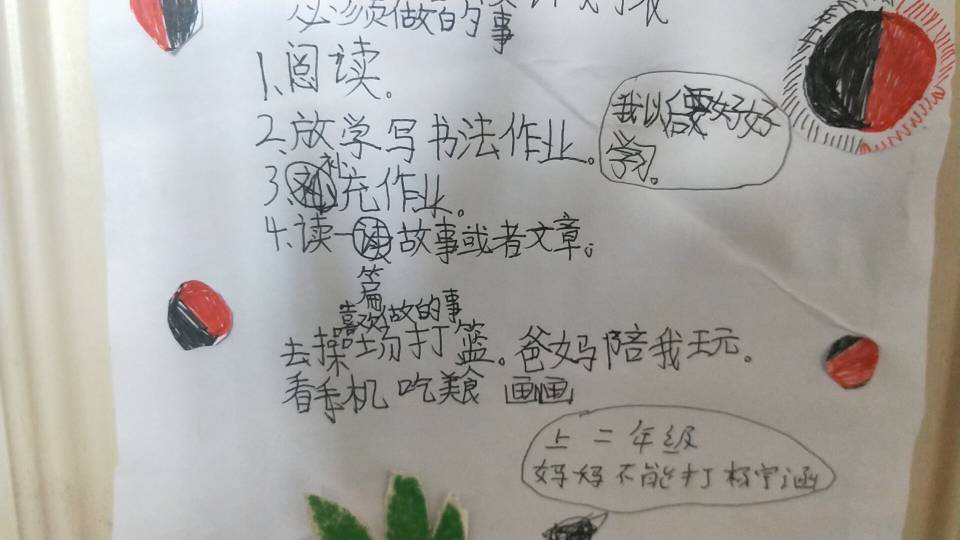 必须做的事
1.阅读。
2.放学写书法作业。
3.补充作业。
4.读一篇故事或者文章。
我以后要好好
学习。
喜欢做的事
去操场打篮。爸妈陪我玩。
看手机 吃美食 画画
上二年级
妈妈不能打杨宇涵